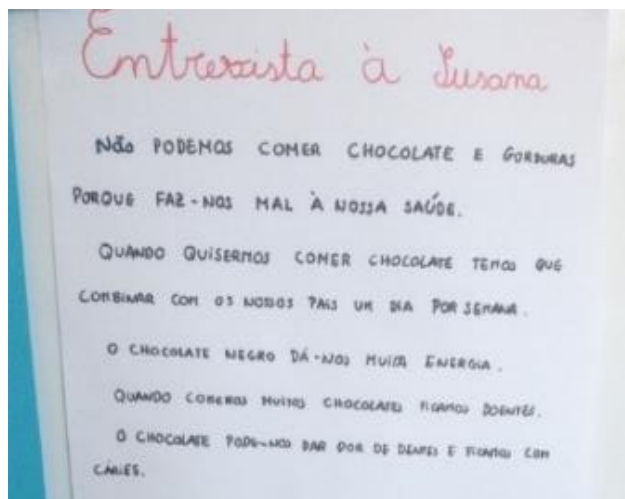 Entrevista à Susana
Não PODEMOS COMER CHOCOLATE E GORDURAS
PORQUE FAZ-NOS MAL À NOSSA SAÚDE.
QUANDO QUISERMOS COMER CHOCOLATE TEMOS QUE
COMBINAR COM OS NOSSOS PAIS UM DIA POR SEMANA.
O CHOCOLATE NEGRO DÁ-NOS MUITA ENERGIA.
QUANDO COMEMOS MUITOS CHOCOLATES FICAMOS DOENTES.
O CHOCOLATE PODE-NOS DAR DOR DE DENTES E FICAMOS COM
CÁRIES.